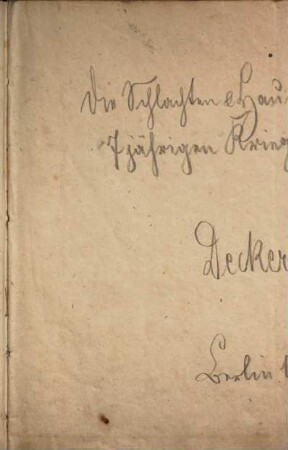 Die Schlachten & Hau
7 jährigen Krieg
Decker
Berlin 1